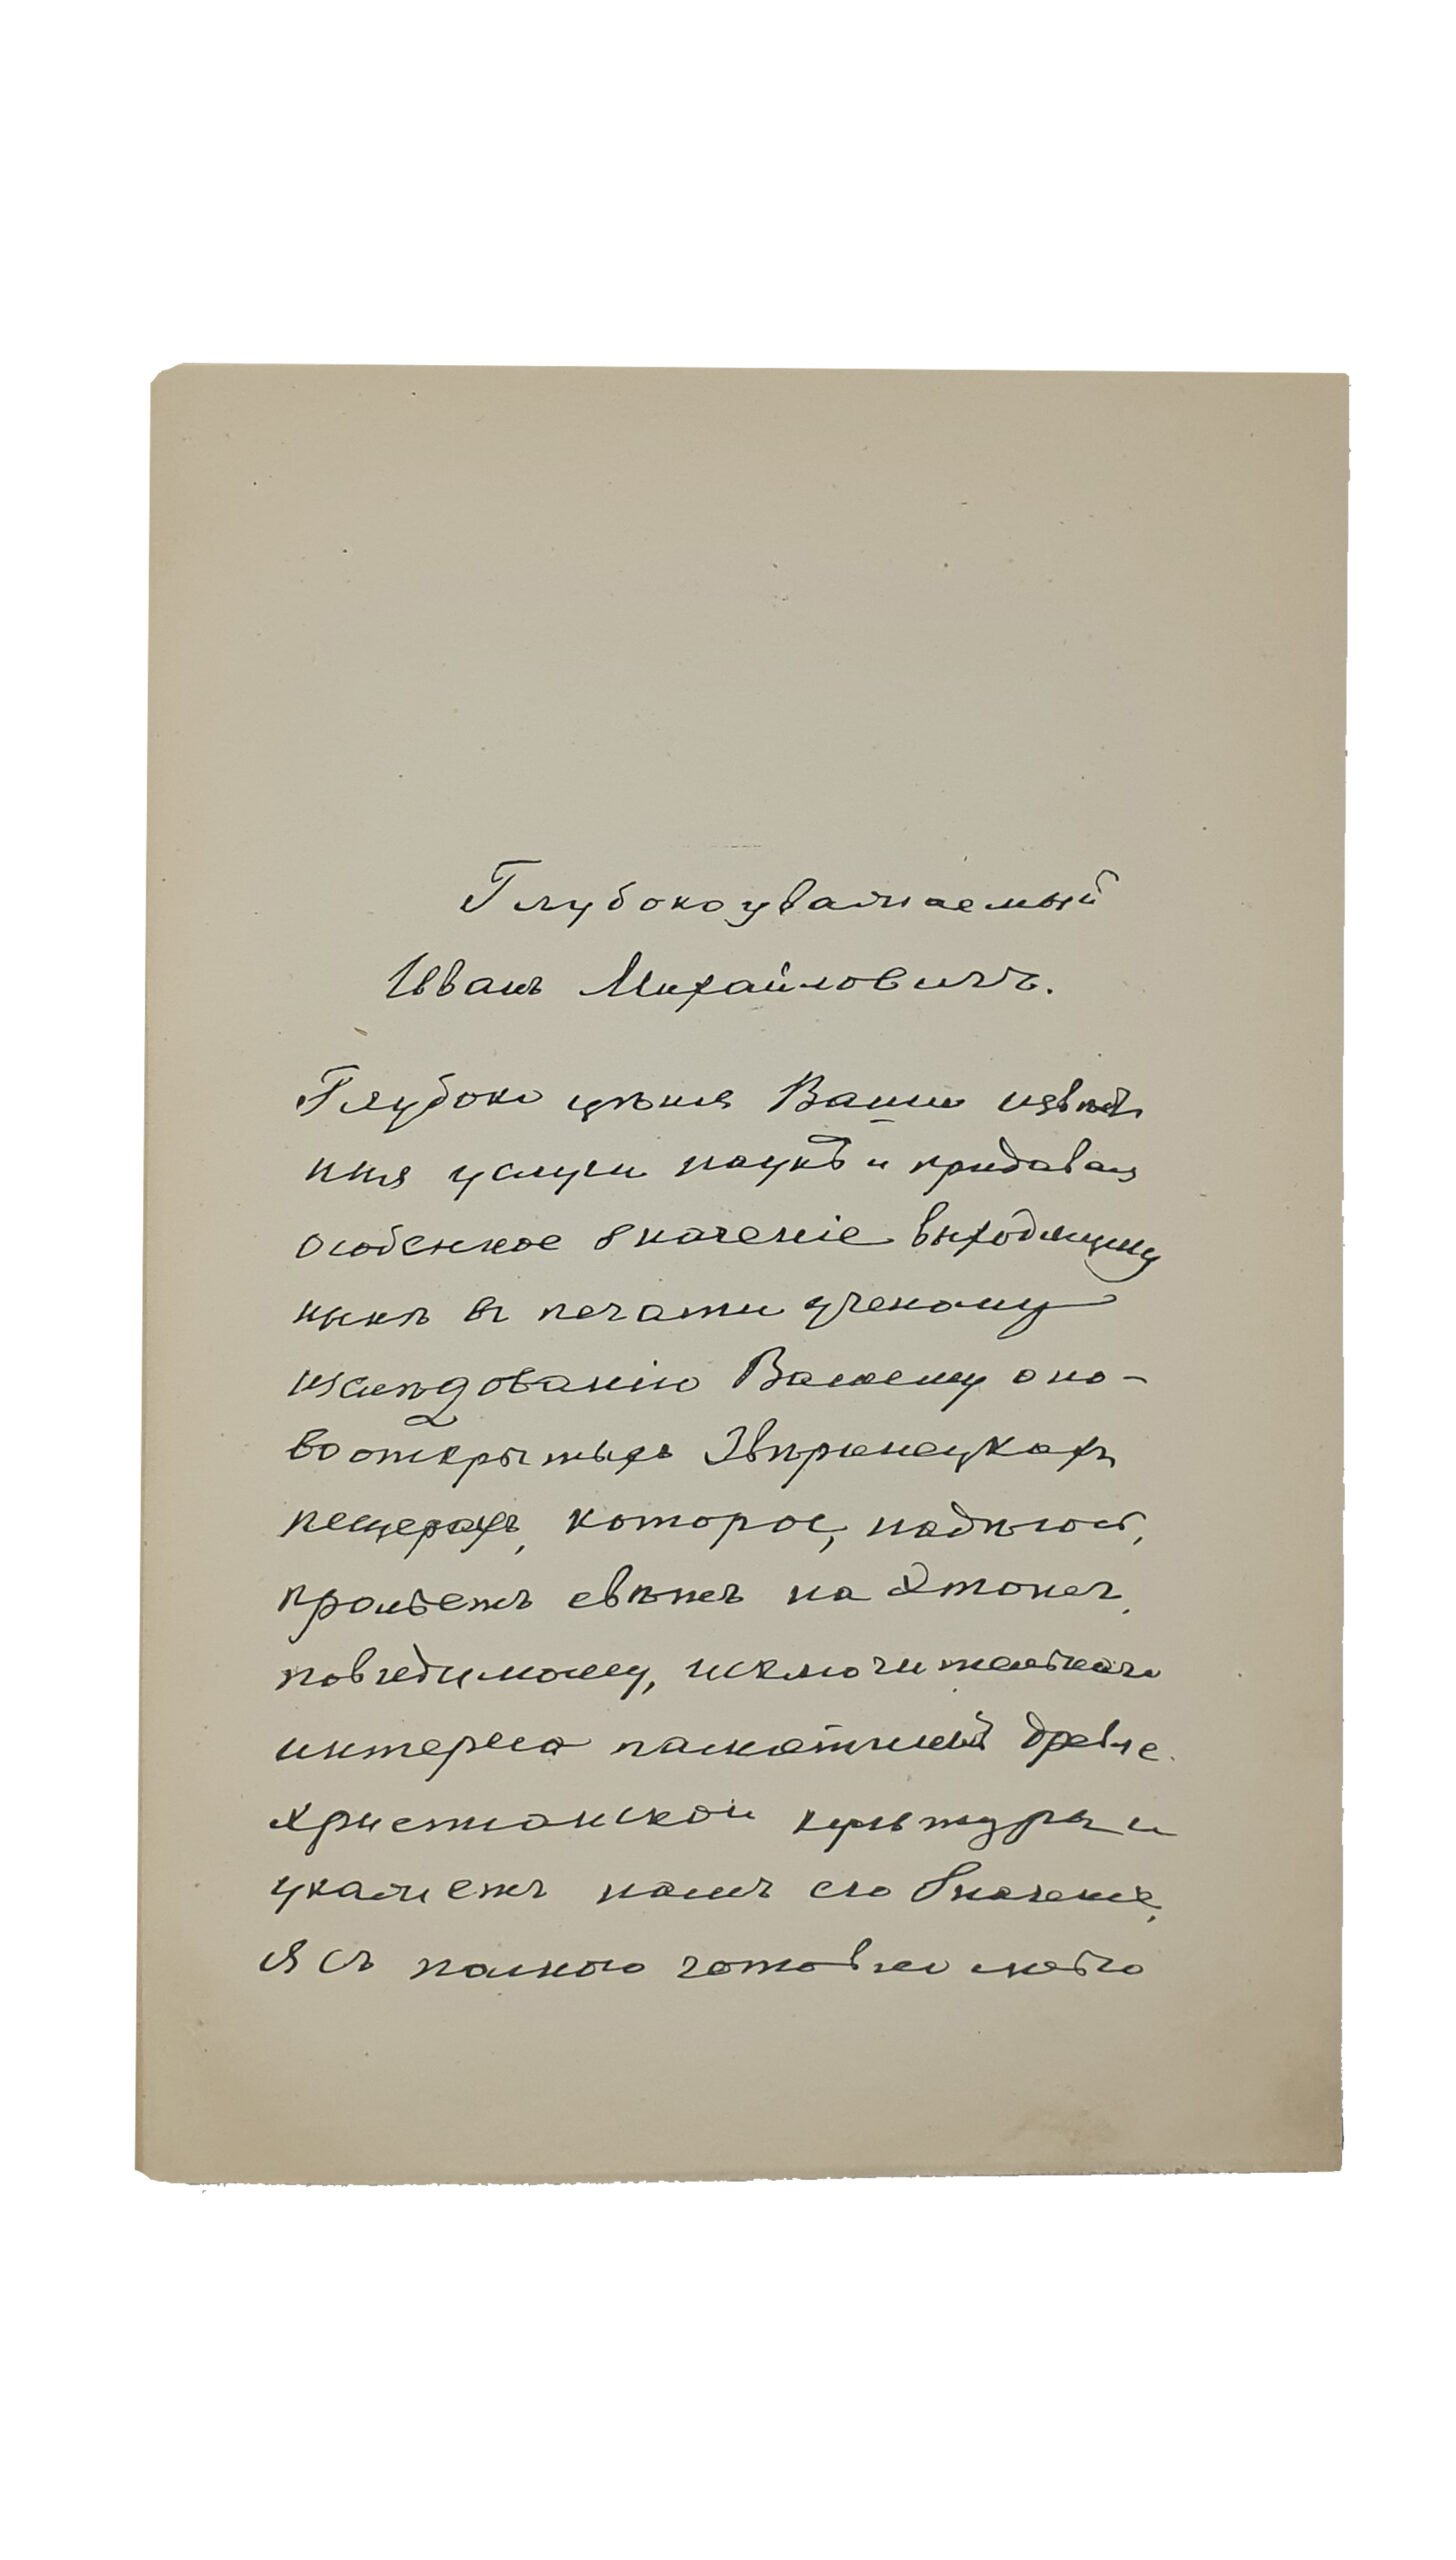 Глубокоуважаемый
Иванъ Михайловичъ.
Глубоко цѣня Ваши извѣст
ныя услуги наукѣ и придавая
особенное значеніе выходящему
нынѣ въ печати ученому
изслѣдованію Вашему о но-
вооткрытыхъ Звѣринецкихъ
пещерахъ, которое, надѣюсь,
прольетъ свѣтъ на этотъ,
повидимому, исключительнаго
интереса памятникъ древне
христіанской культуры и
укажетъ намъ его значеніе,
я съ полною готовностью